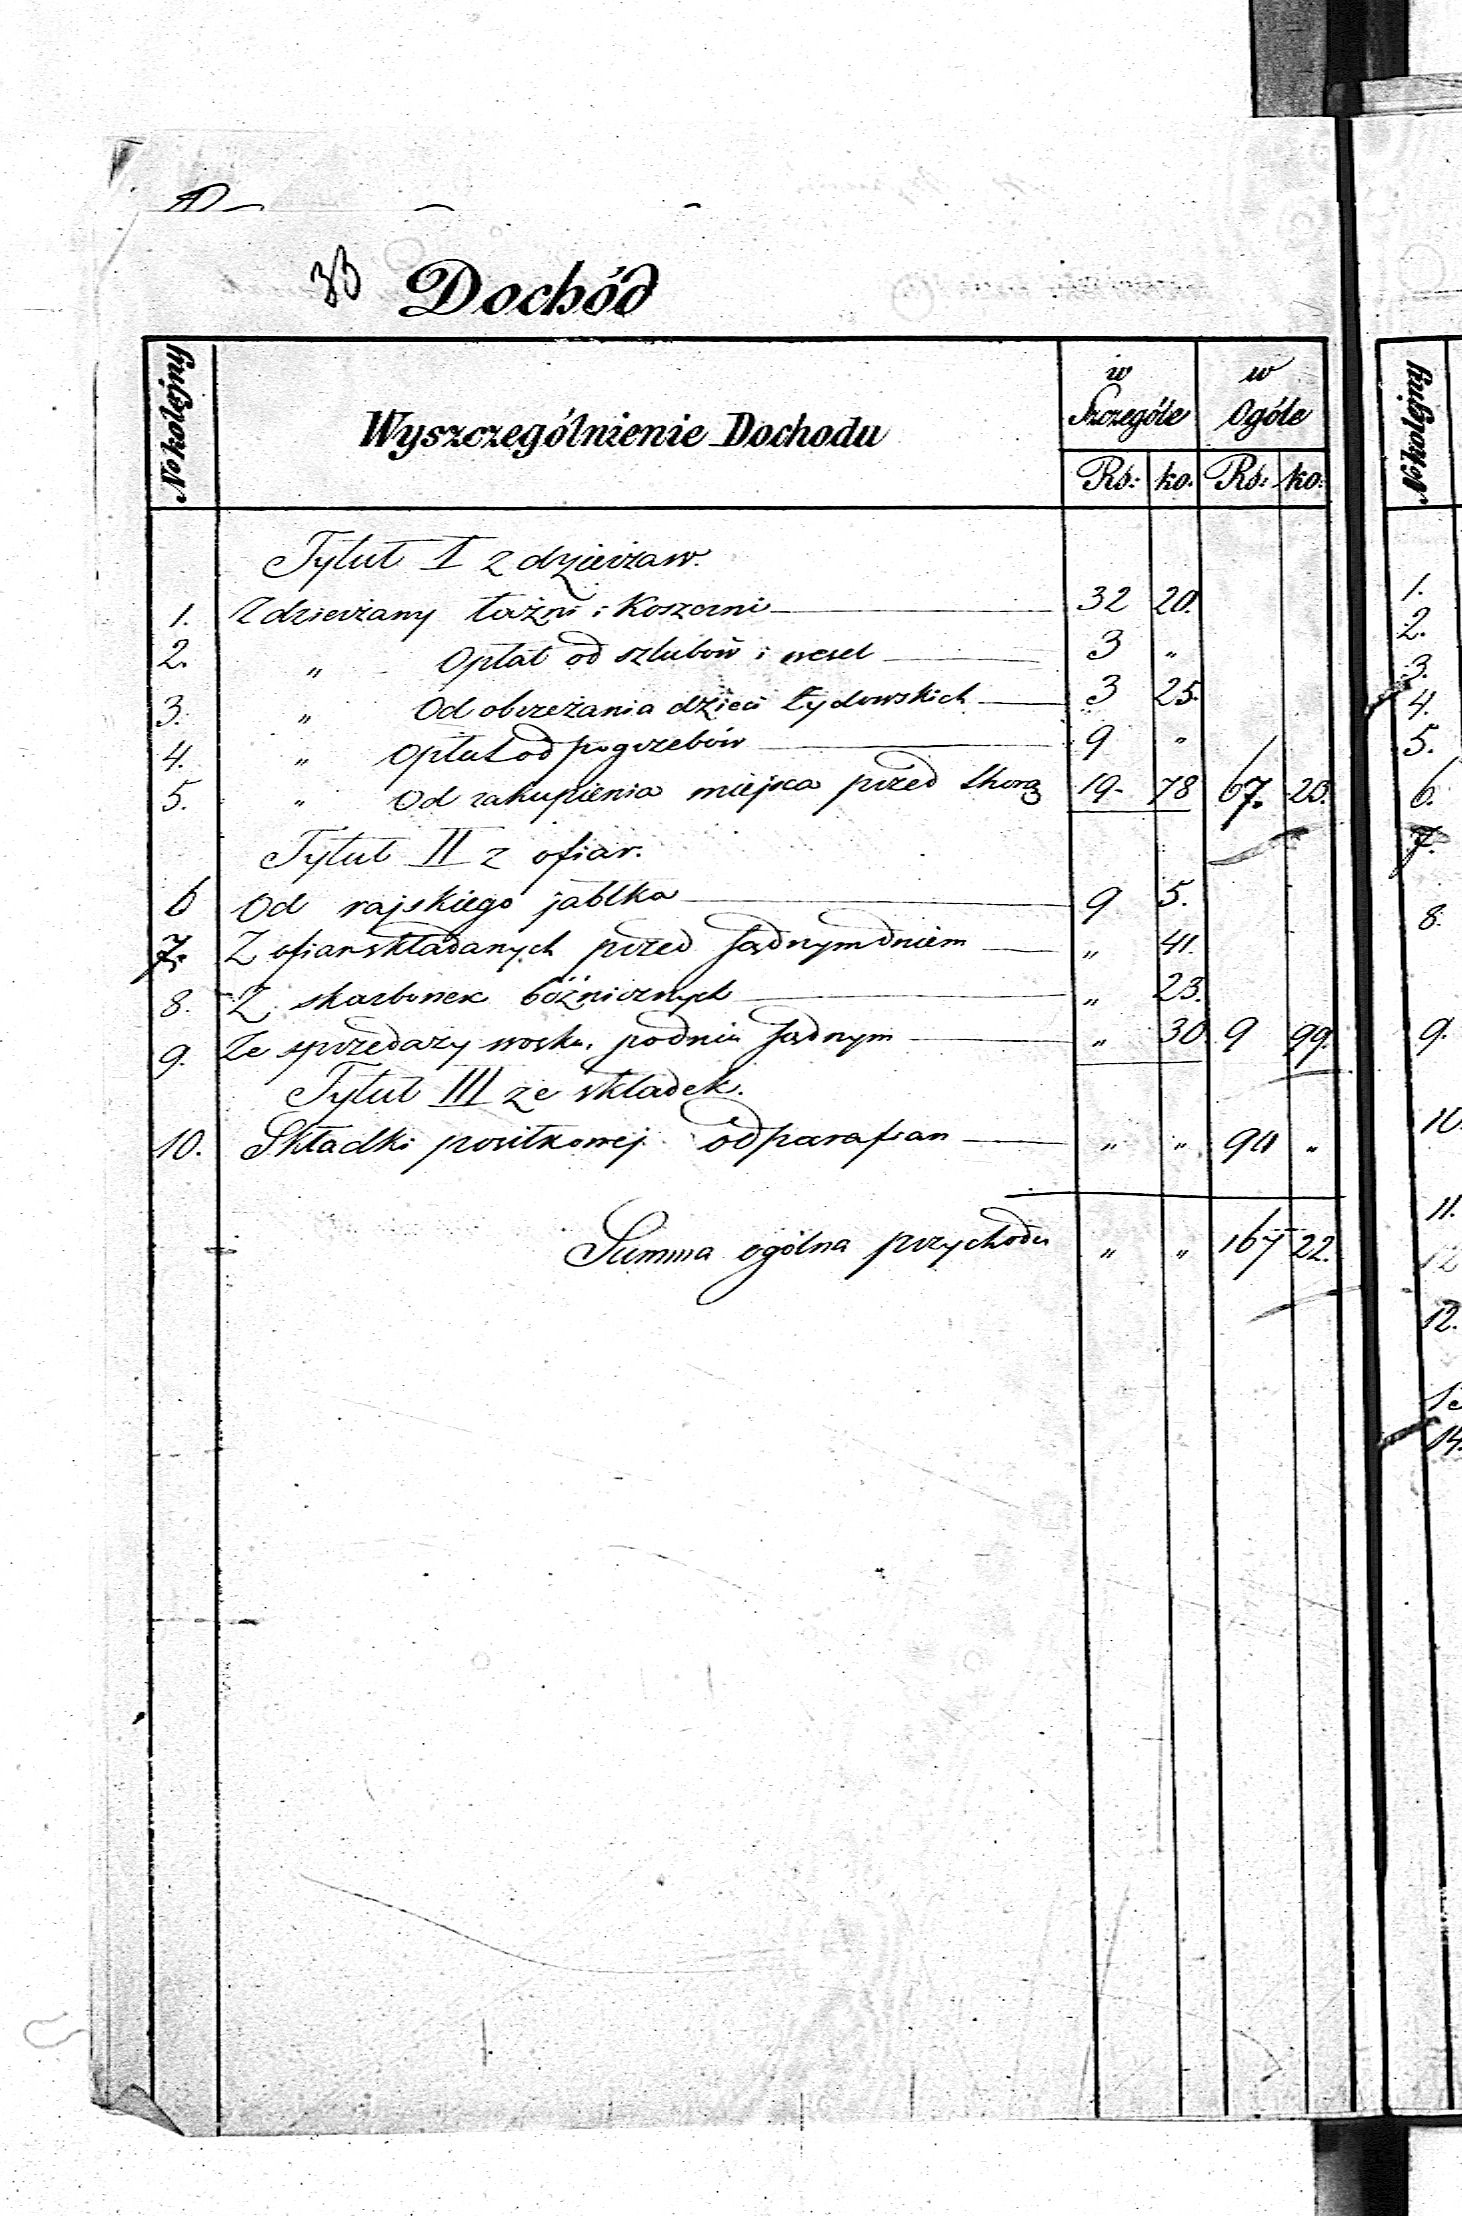 33 Dochód
No kolejny
Wyszczególnienie Dochodu
w Szczególe
w Ogóle
Rs: ko. Rs: ko:
Tytuł I z dzierżaw.
1. Z dzierżawy łaźni i Koszerni 32 20.
2. " Opłat od szlubów i wesel 3 "
3. " Od obrzeżania dzieci żydowskich 3 25.
4. " Opłat od pogrzebów 9 "
5. " Od zakupienia miejsca przed thorą 19- 78 67. 23.
Tytuł II z ofiar.
6 Od rajskiego jabłka 9 5.
7. Z ofiar składanych przed Sądnym dniem " 41.
8. Z skarbonek bóżnicznych " 23.
9. Ze sprzedaży wosku po dniu Sądnym " 30 9 99.
Tytuł III ze składek.
10. Składki posiłkowej od parafian " " 90 "
Summa ogólna przychodu " " 167 22.
No kolejny
1.
2.
3.
4.
5.
6.
7.
8.
9.
10.
11.
12
12.
14.